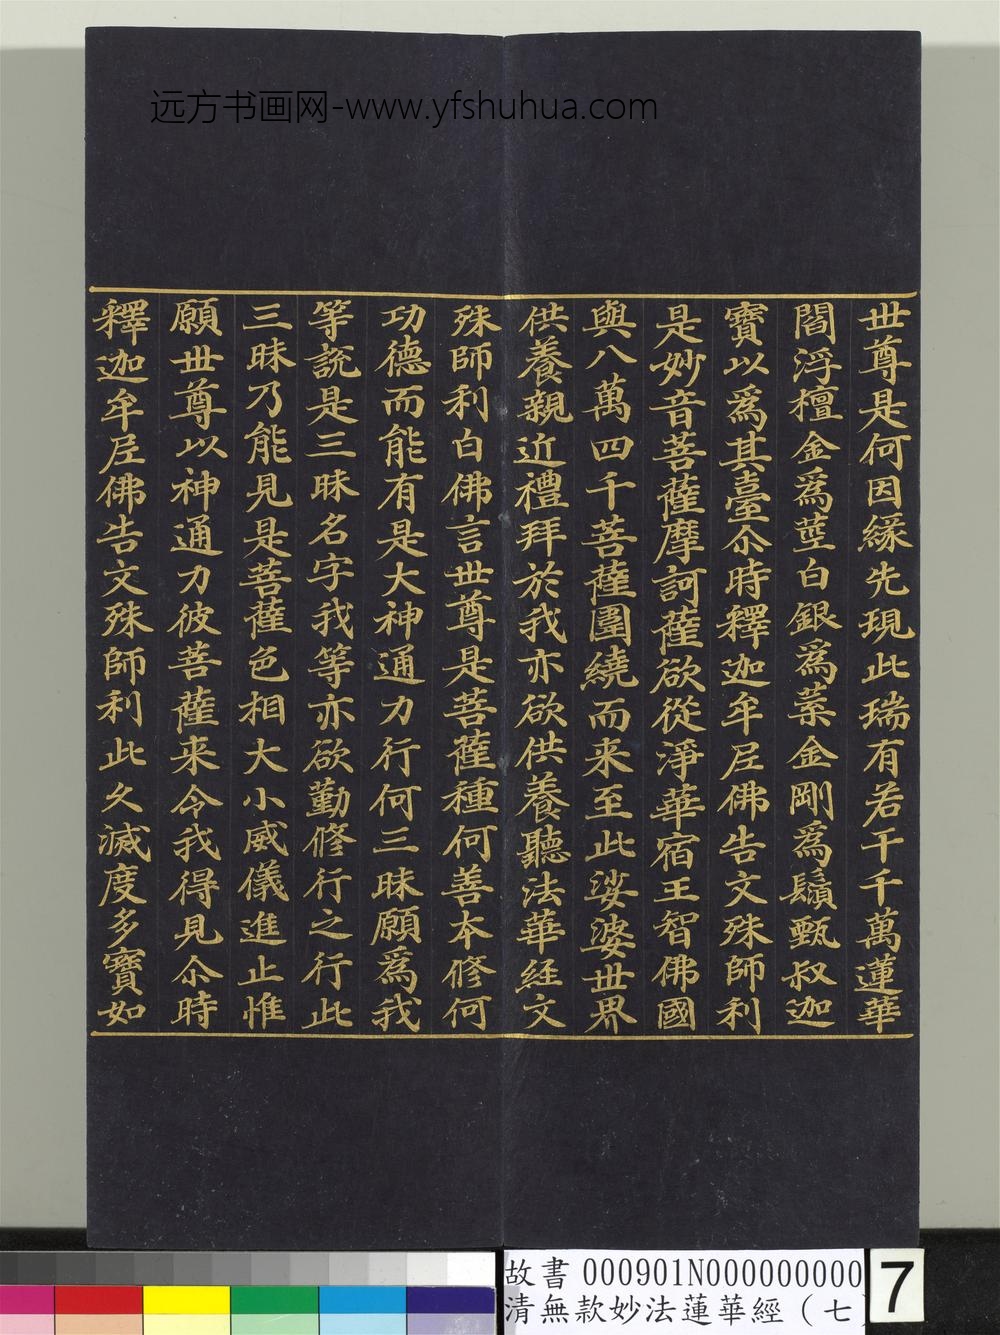 远方书画网-www.yfshuhua.com
世尊是何因緣先現此瑞有若干千萬蓮華
閻浮檀金為莖白銀為葉金剛為鬚甄叔迦
寶以為其臺尒時釋迦牟尼佛告文殊師利
是妙音菩薩摩訶薩欲從淨華宿王智佛國
與八萬四千菩薩圍繞而来至此娑婆世界
供養親近禮拜於我亦欲供養聽法華經文
殊師利白佛言世尊是菩薩種何善本修何
功德而能有是大神通力行何三昧願為我
等說是三昧名字我等亦欲勤修行之行此
三昧乃能見是菩薩色相大小威儀進止惟
願世尊以神通力彼菩薩来令我得見尒時
釋迦牟尼佛告文殊師利此久滅度多寶如
故書 000901N000000000
清無款妙法蓮華經（七）
7